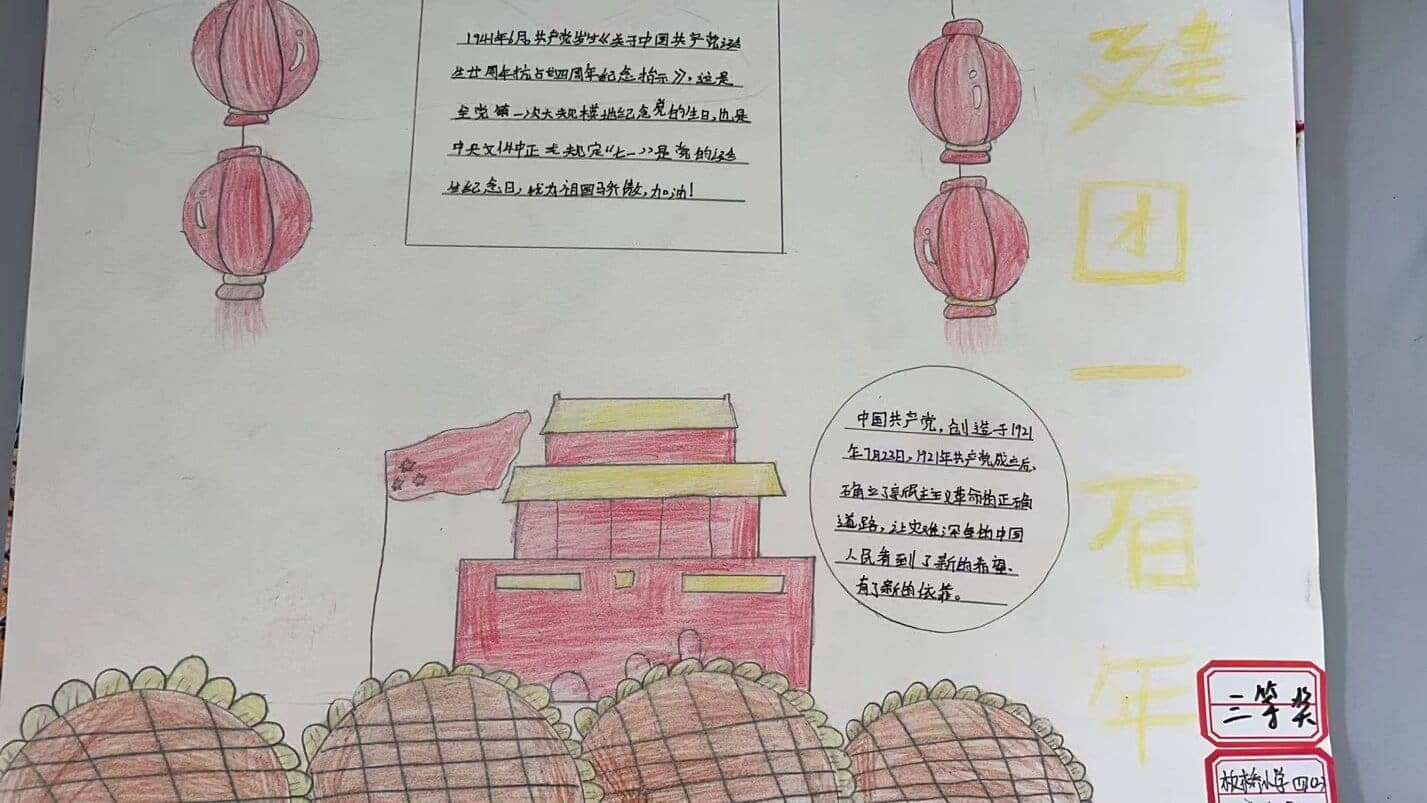 1941年6月,共产党发出《关于中国共产党诞
生廿周年抗占廿四周年纪念指示》,这是
全党第一次大规模地纪念党的生日,也是
中央文件中正式规定“七一”是党的诞
生纪念日,我为祖国骄傲,加油!
中国共产党,创造于1921
年7月23日,1921年共产党成立后,
确立了民主主义革命的正确
道路,让灾难深重的中国
人民看到了新的希望、
有了新的依靠。
建
团
一
百
年
三等奖
板桥小学四(2)